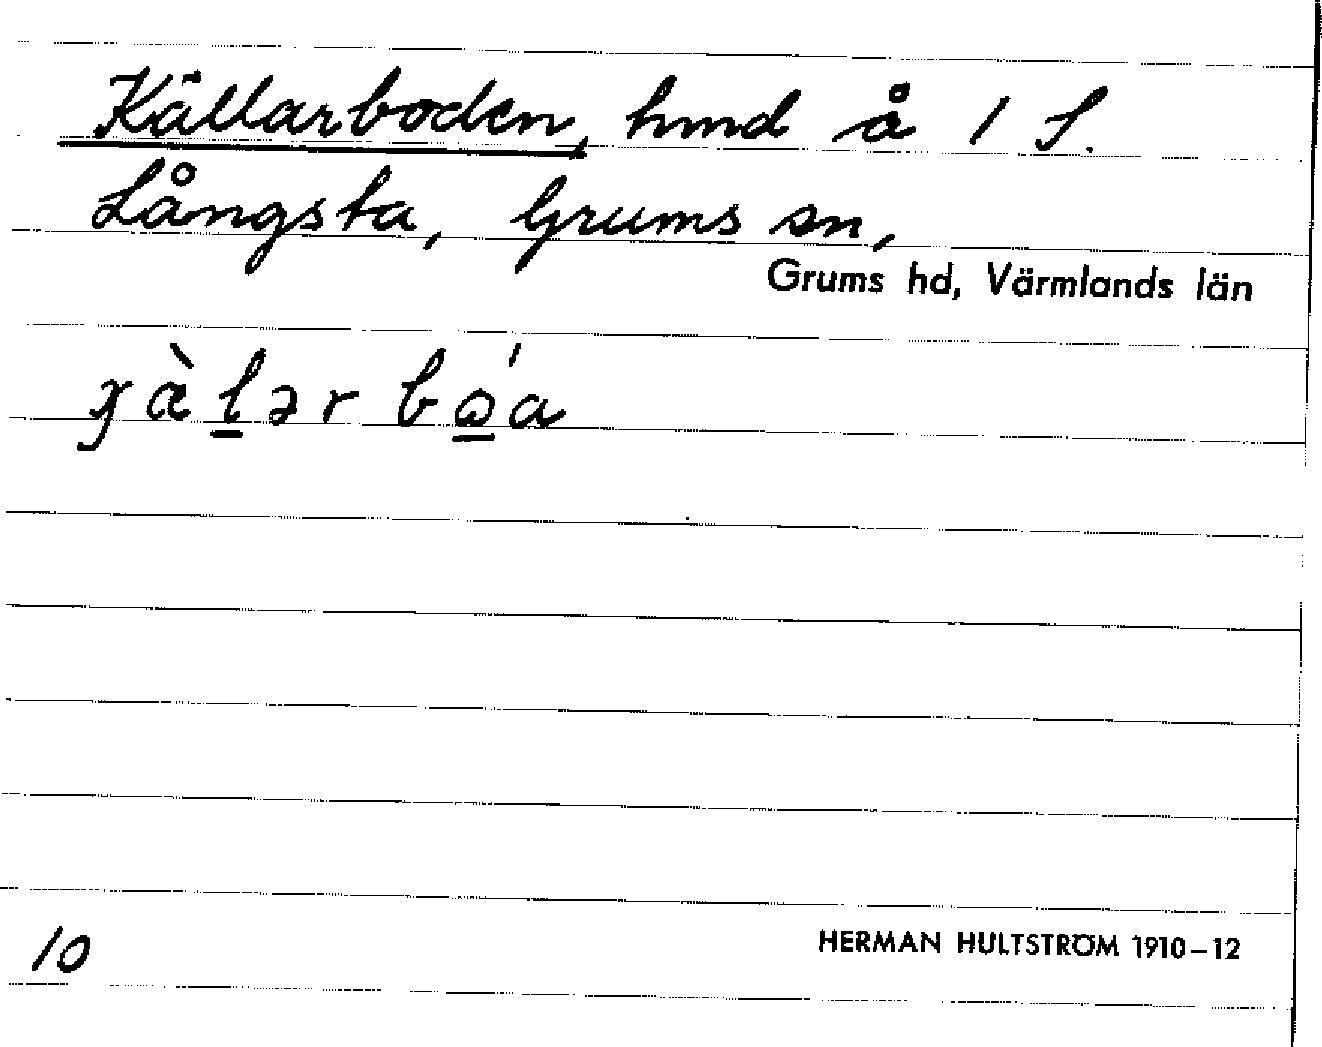 Källarboden, hmd å 1 S.
Långsta, Grums sn,
Grums hd, Värmlands län
10
HERMAN HULTSTRÖM 1910–12